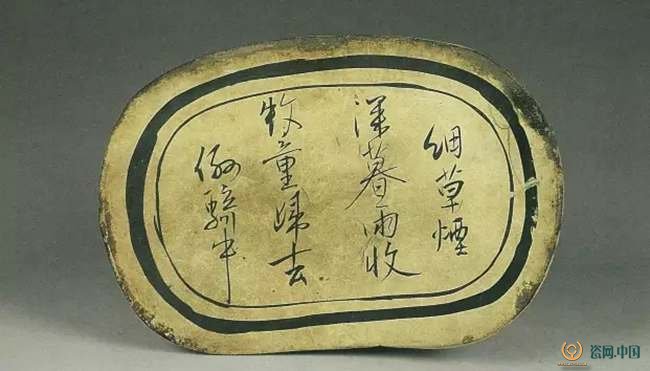 細草煙
深暮雨收
牧童歸去
倒騎牛
瓷网.中国